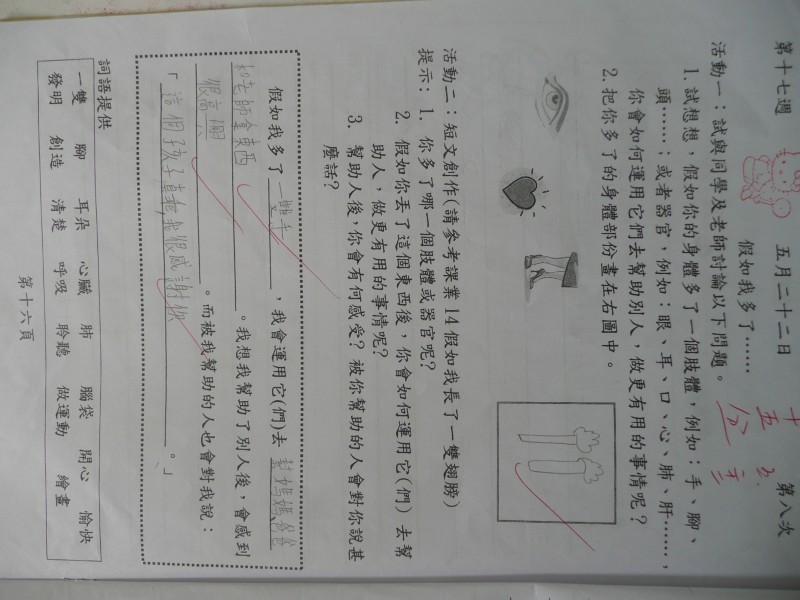 第十七週 五月二十二日 第八次
假如我多了……
活動一：試與同學及老師討論以下問題。
1. 試想想，假如你的身體多了一個肢體，例如：手、腳、
頭……；或者器官，例如：眼、耳、口、心、肺、肝……，
你會如何運用它們去幫助別人，做更有用的事情呢？
2. 把你多了的身體部份畫在右圖中。
活動二：短文創作(請參考課業 14 假如我長了一雙翅膀)
提示：1. 你多了哪一個肢體或器官呢？
2. 假如你丟了這個東西後，你會如何運用它(們) 去幫
助人，做更有用的事情呢？
3. 幫助人後，你會有何感受？被你幫助的人會對你說甚
麼話？
假如我多了一雙手，我會運用它(們)去幫媽媽爸爸
和老師拿東西。我想我幫助了別人後，會感到
很高興。而被我幫助的人也會對我說：
「這個孩子真乖,我很感謝你。」
詞語提供
一雙 腳 耳朵 心臟 肺 腦袋 開心 愉快
發明 創造 清楚 呼吸 聆聽 做運動 繪畫
第十六頁